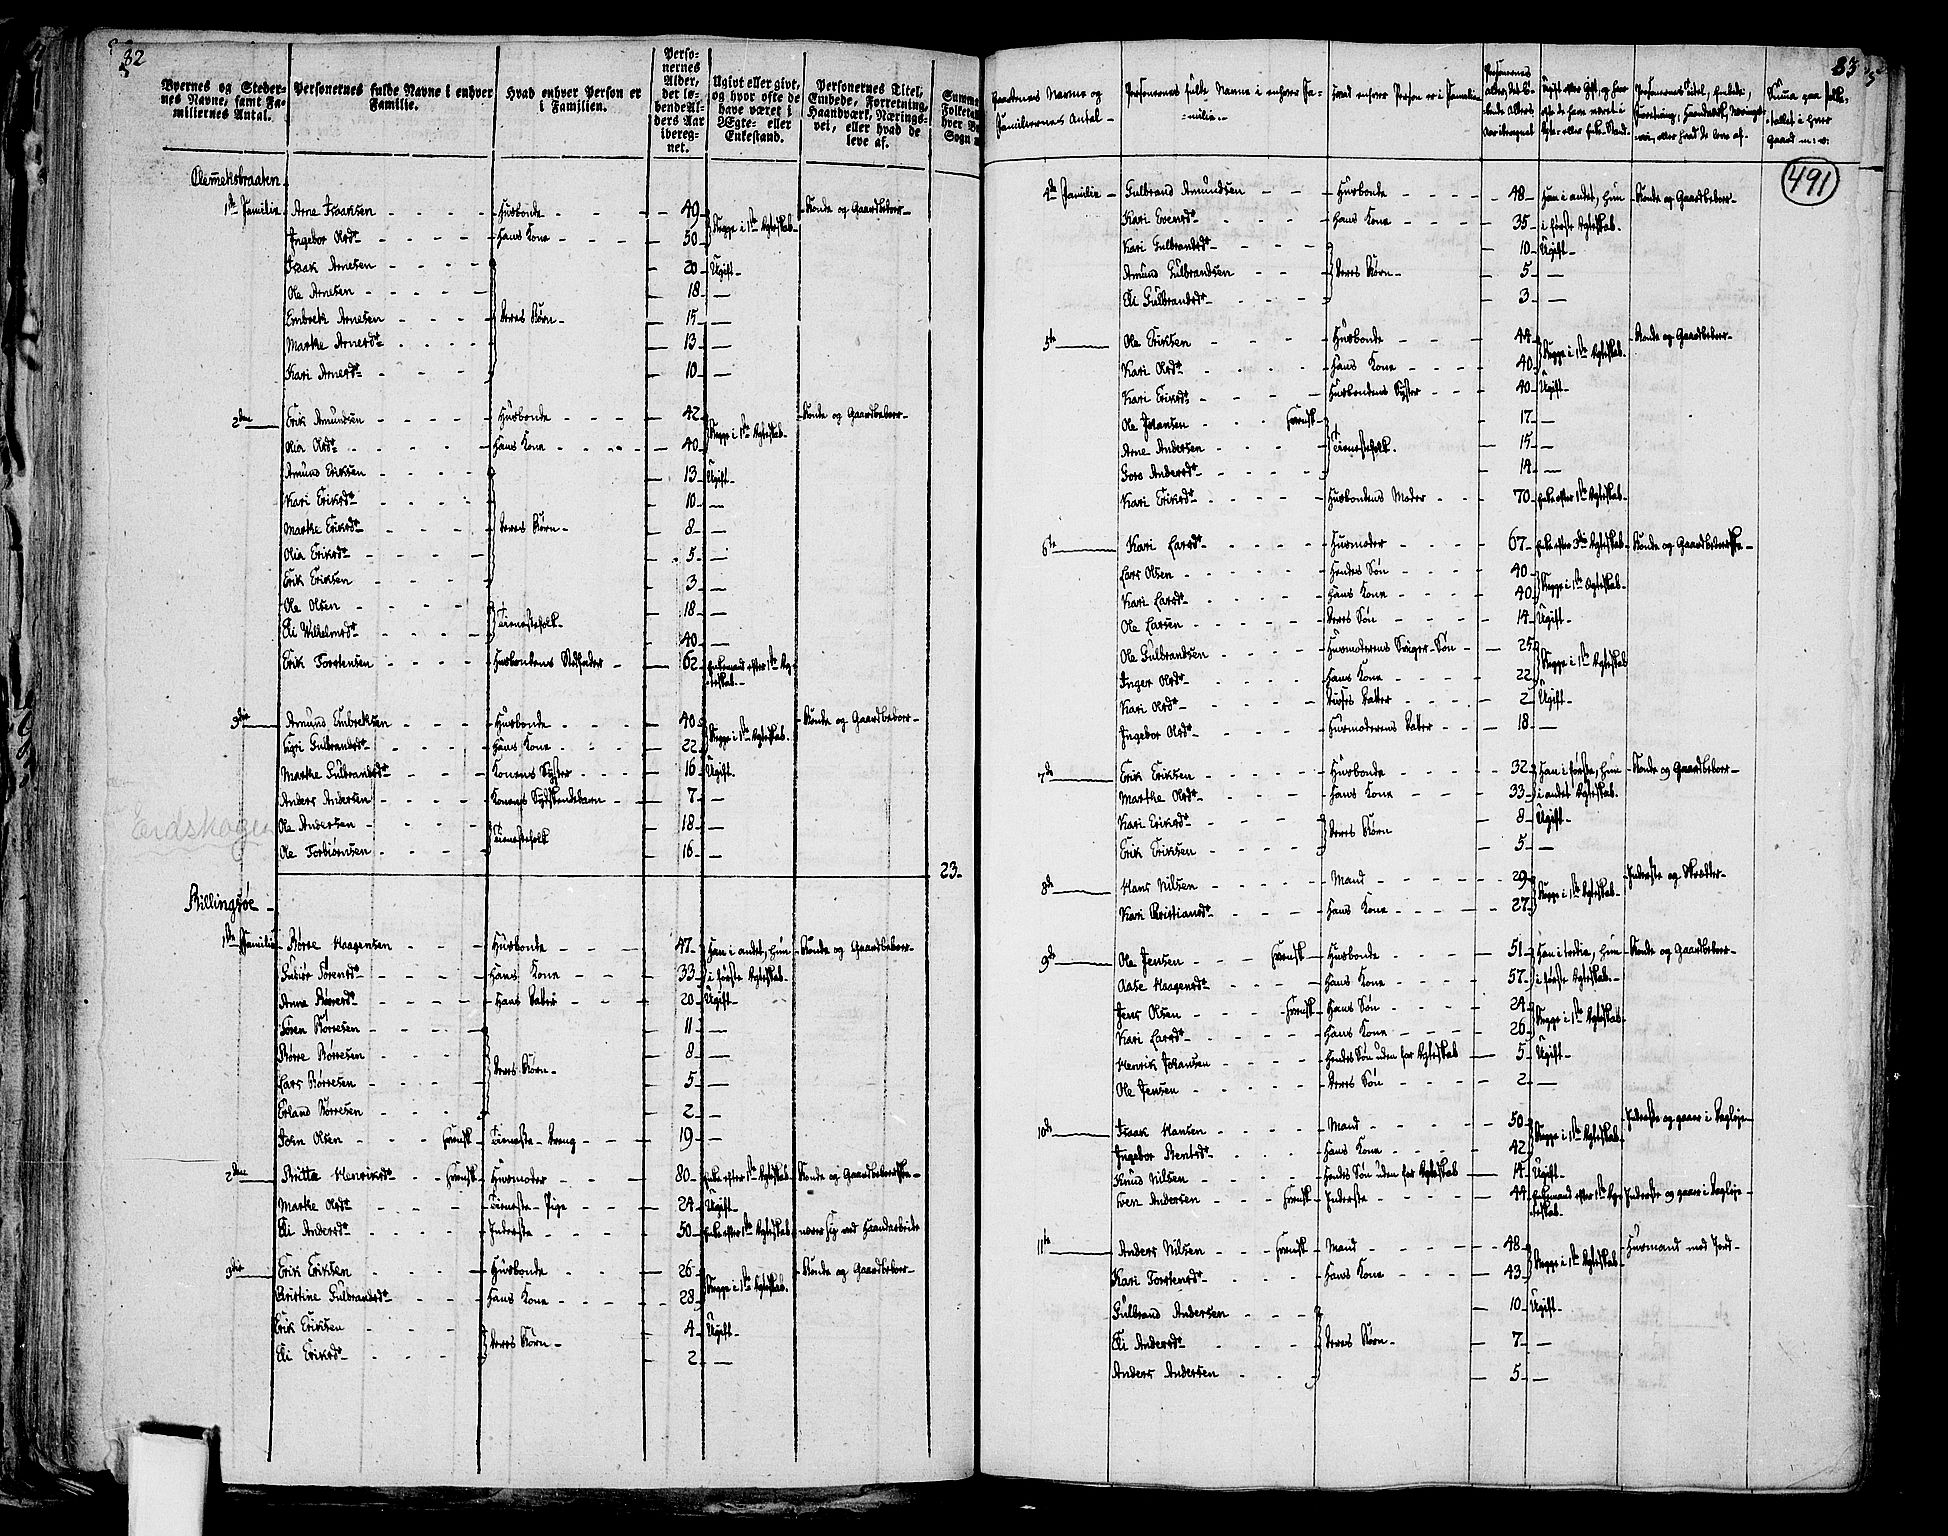 82
Byernes og Stedernes Navne, samt Familiernes Antal.
Personernes fulde Navne i enhver Familie.
Hvad enhver Person er i Familien.
Personernes Alder, det løbende Alders Aar iberegnet.
Ugivt eller givt, og hvor ofte de have været i Ægte- eller Enkestand.
Personernes Titel, Embede, Forretning, Haandværk, Næringsvei, eller hvad de leve af.
Clemetsbraaten.
1ste Familie Arne Isaaksen - Husbonde - 49 Begge i 1ste Ægteskab Bonde og Gaardbeboer
Ingebor Olsd. - Hans Kone - 50
Isaak Arnesen - 20 Ugift
Ole Arnesen - 18 -
Embrek Arnesen - Deres Børn - 15 -
Marthe Arnesd. - 13 -
Kari Arnesd. - 10 -
2den Erik Amundsen - Husbonde - 42 Begge i 1ste Ægteskab Bonde og Gaardbeboer
Olia Olsd. - Hans Kone - 40
Amund Eriksen - 13 Ugift
Kari Eriksd. - 10 -
Marthe Eriksd. - Deres Børn - 8 -
Olia Eriksd. - 5 -
Erik Eriksen - 3 -
Ole Olsen - Tienestefolk - 18 -
Eli Wilhelmsd. - 40 -
Erik Torstensen - Husbondens Stedfader - 62 Enkemand efter 1ste Ægteskab
3die Amund Embreksen - Husbonde - 40 Begge i 1ste Ægteskab. Bonde og Gaardbeboer
Kari Gulbrandsd. - Hans Kone - 22
Marthe Gulbrandsd. - Konens Syster - 16 Ugift
Anders Andersen - Konens Sydskendebarn - 7 -
Eidskogen
Ole Andersen - Tienestefolk - 18 -
Ole Torbiørnsen - 16 -
23
Billingsøe
1ste Familie Børre Haagensen - Husbonde - 47 Han i andet, hun Bonde og Gaardbeboer
Gubiør Sørensd. - Hans Kone - 33 i første Ægteskab.
Anne Børresd. - Hans Datter - 20 Ugift
Søren Børresen - 11 -
Børre Børresen - Deres Børn - 8 -
Lars Børresen - 5 -
Erland Børresen - 2 -
John Olsen - Svensk - Tieneste-Dreng - 19 -
2den Britta Henriksd. - Svensk - Husmoder - 80 Enke efter 1ste Ægteskab Bonde og Gaardbeboerske
Marthe Olsd. - Tieneste-Pige - 24 Ugift
Eli Andersd. - Inderste - 50 Enke efter 1ste Ægteskab nærer sig ved Haandarbeide
3die Erik Eriksen - Husbonde - 26 Begge i 1ste Ægteskab. Bonde og Gaardbeboer
Christine Gulbrandsd. - Hans Kone - 28
Erik Eriksen - Deres Børn - 4 Ugift
Eli Eriksd. - 2 -
83
491
Gaardenes Navne og Familiernes Antal
Personernes fulde Navne i enhver Familie.
Hvad enhver Person er i Familien
Personernes Alder, det løbende Alders Aar iberegnet
Ugift eller gift, og hvor ofte de have været i Ægte- eller Enke-Stand.
Personernes Titel, Embede, Forretning, Haandværk, Næringsvei, eller hvad de leve af.
4de Familie Gulbrand Amundsen - Husbonde - 48 Han i andet, hun Bonde og Gaardbeboer
Kari Evensd. - Hans Kone - 35 i første Ægteskab.
Kari Gulbrandsd. - 10 Ugift
Amund Gulbrandsen - Deres Børn - 5 -
Eli Gulbrandsd. - 3 -
5te Ole Eriksen - Husbonde - 44 Begge i 1ste Ægteskab. Bonde og Gaardbeboer
Kari Olsd. - Hans Kone - 40
Kari Eriksd. - Husbondens Syster - 40 Ugift
Ole Johansen - Svensk - 17 -
Arne Andersen - Tienestefolk. - 15 -
Goro Andersd. - 14 -
Kari Eriksd. - Husbondens Moder - 70 Enke efter 1ste Ægteskab
6te Kari Larsd. - Husmoder - 67 Enke efter 3die Ægteskab Bonde og Gaardbeboerske
Lars Olsen - Hendes Søn - 40 Begge i 1ste Ægteskab
Kari Larsd. - Hans Kone - 40
Ole Larsen - Deres Søn - 14 Ugift
Ole Gulbrandsen - Husmoderens Sviger-Søn - 25 Begge i 1ste Ægteskab
Inger Olsd. - Hans Kone - 22
Kari Olsd. - Disses Datter - 2 Ugift
Ingebor Olsd. - Husmoderens Datter - 18 -
7de Erik Eriksen - Husbonde - 32 Han i første, hun Bonde og Gaardbeboer
Marthe Olsd. - Hans Kone - 33 i andet Ægteskab.
Kari Eriksd. - Deres Børn - 8 Ugift
Erik Eriksen - 5 -
8de Hans Nilsen - Mand - 29 Begge i 1ste Ægteskab Inderste og Skrædder
Kari Christiansd. - Hans Kone - 27
9de Ole Jensen - Svensk - Husbonde - 51 Han i tredie, hun Bonde og Gaardbeboer
Aase Haagensd. - Hans Kone - 57 i første Ægteskab.
Jens Olsen - Svensk - Hans Søn - 24 Begge i 1ste Ægteskab
Kari Larsd. - Hans Kone - 26
Henrik Johansen - Hendes Søn uden for Ægteskab - 5 Ugift
Ole Jensen - Deres Søn - 2 -
10de Isaak Hansen - Mand - 50 Begge i 1ste Ægteskab Inderste og gaaer i Dagleie
Ingebor Bentsd. - Hans Kone - 42
Knud Nilsen - Hendes Søn uden for Ægteskab - 14 Ugift
Sven Andersen - Svensk - Inderste - 44 Enkemand efter 1ste Ægteskab. Inderste og gaaer i Dagleie
11te Anders Nilsen - Svensk - Mand - 48 Begge i 1ste Ægteskab Husmand med Jord
Kari Torstensd. - Hans Kone - 43
Gulbrand Andersen - 10 Ugift
Eli Andersd. - Deres Børn - 7 -
Anders Andersen - 5 -